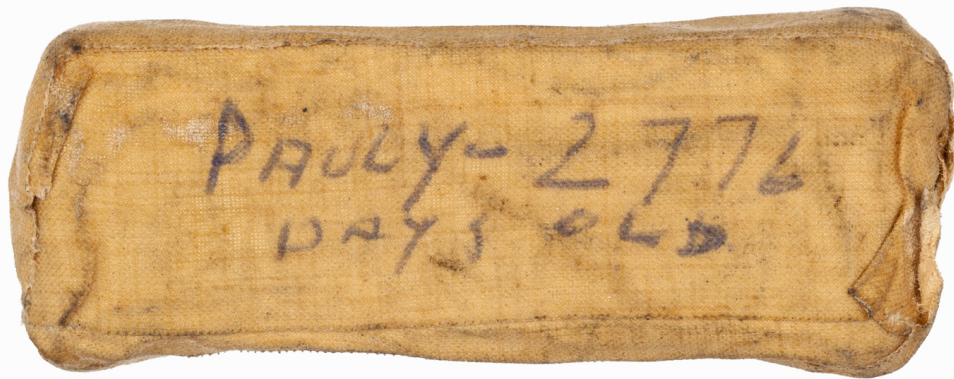 PAULY- 2776
DAYS OLD